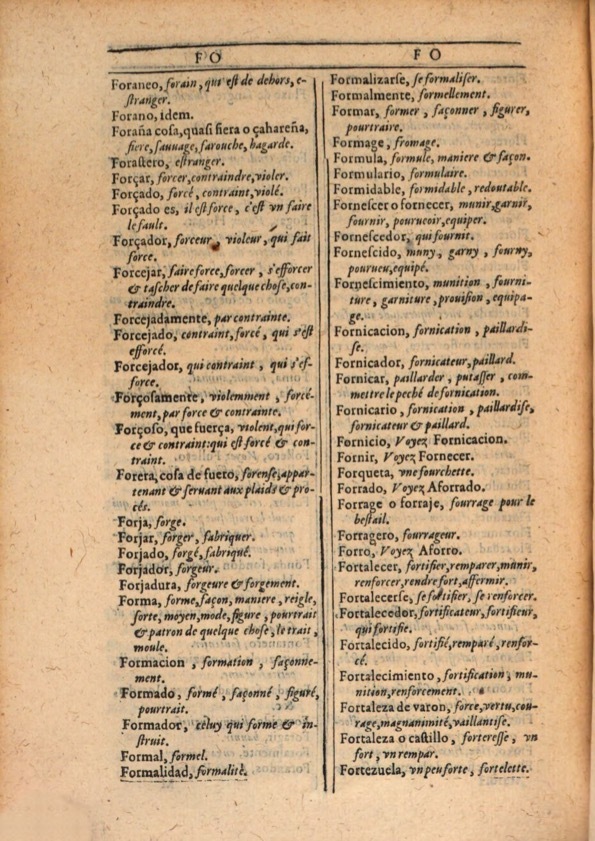 FO
Foraneo, forain, qui est de dehors, e-
ſtranger.
Forano, idem.
Foraña coſa, quaſi fiera o çahareña,
fiere, ſauuage, farouche, hagarde.
Foraſtero, eſtranger.
Forçar, forcer, contraindre, violer.
Forçado, forcé, contraint, violé.
Forçado es, il eſt force, c'eſt vn faire
le fault.
Forçador, forceur, violeur, qui fait
force.
Forcejar, faire force, forcer, s'efforcer
& taſcher de faire quelque choſe, con-
traindre.
Forcejadamente, par contrainte.
Forcejado, contraint, forcé, qui s'eſt
efforcé.
Forcejador, qui contraint, qui s'eſ-
force.
Forçoſamente, violemment, forcé-
ment, par force & contrainte.
Forçoſo, que fuerça, violent, qui for-
ce & contraint: qui eſt forcé & con-
traint.
Forera, coſa de fuero, forenſe, appar-
tenant & ſeruant aux plaids & pro-
cés.
Forja, forge.
Forjar, forger, fabriquer.
Forjado, forgé, fabriqué.
Forjador, forgeur.
Forjadura, forgeure & forgement.
Forma, forme, façon, maniere, reigle,
ſorte, moyen, mode, figure, pourtrait
& patron de quelque choſe, le trait,
moule.
Formacion, formation, façonne-
ment.
Formado, formé, façonné, figuré,
pourtrait.
Formador, celuy qui forme & in-
ſtruit.
Formal, formel.
Formalidad, formalité.
FO
Formalizarſe, ſe formaliſer.
Formalmente, formellement.
Formar, former, façonner, figurer,
pourtraire.
Formage, fromage.
Formula, formule, maniere & façon.
Formulario, formulaire.
Formidable, formidable, redoutable.
Forneſcer o fornecer, munir, garnir,
fournir, pourueoir, equiper.
Forneſcedor, qui fournit.
Forneſcido, muny, garny, fourny,
pourueu, equipé.
Forneſcimiento, munition, fourni-
ture, garniture, prouiſion, equipa-
ge.
Fornicacion, fornication, paillardi-
ſe.
Fornicador, fornicateur, paillard.
Fornicar, paillarder, putaſſer, com-
mettre le peché de fornication.
Fornicario, fornication, paillardiſe,
fornicateur & paillard.
Fornicio, Voyez Fornicacion.
Fornir, Voyez Fornecer.
Forqueta, vne fourchette.
Forrado, Voyez Aforrado.
Forrage o forraje, fourrage pour le
beſtail.
Forragero, fourrageur.
Forro, Voyez Aforro.
Fortalecer, fortifier, remparer, munir,
renforcer, rendre fort, affermir.
Fortalecerſe, ſe fortifier, ſe renforcer.
Fortalecedor, fortificateur, fortifieur,
qui fortifie.
Fortalecido, fortifié, remparé, renfor-
cé.
Fortalecimiento, fortification, mu-
nition, renforcement.
Fortaleza de varon, force, vertu, cou-
rage, magnanimité, vaillantiſe.
Fortaleza o caſtillo, fortereſſe, vn
fort, vn rempar.
Fortezuela, vn peu forte, fortelette.